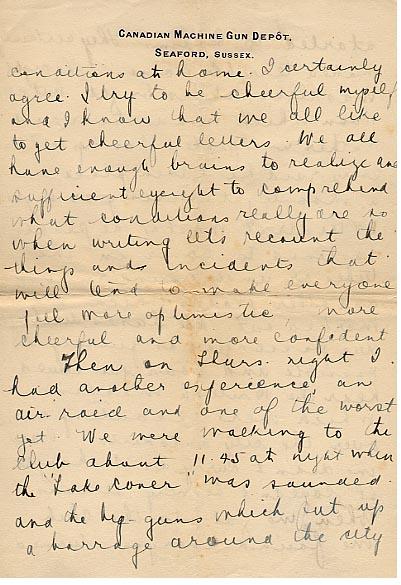 CANADIAN MACHINE GUN DEPÔT,
SEAFORD, SUSSEX.
conditions at home. I certainly
agree. I try to be cheerful myself
and I know that we all like
to get cheerful letters. We all
have enough brains to realize and
sufficient eyesight to comprehend
what conditions really are so
when writing let's recount the
things and incidents that
will tend to make everyone
feel more optimistic, more
cheerful and more confident
Then on Thurs. night I
had another experience, an
air raid and one of the worst
yet. We were walking to the
club about 11.45 at night when
the "Take cover" was sounded.
and the big guns which put up
a barrage around the city